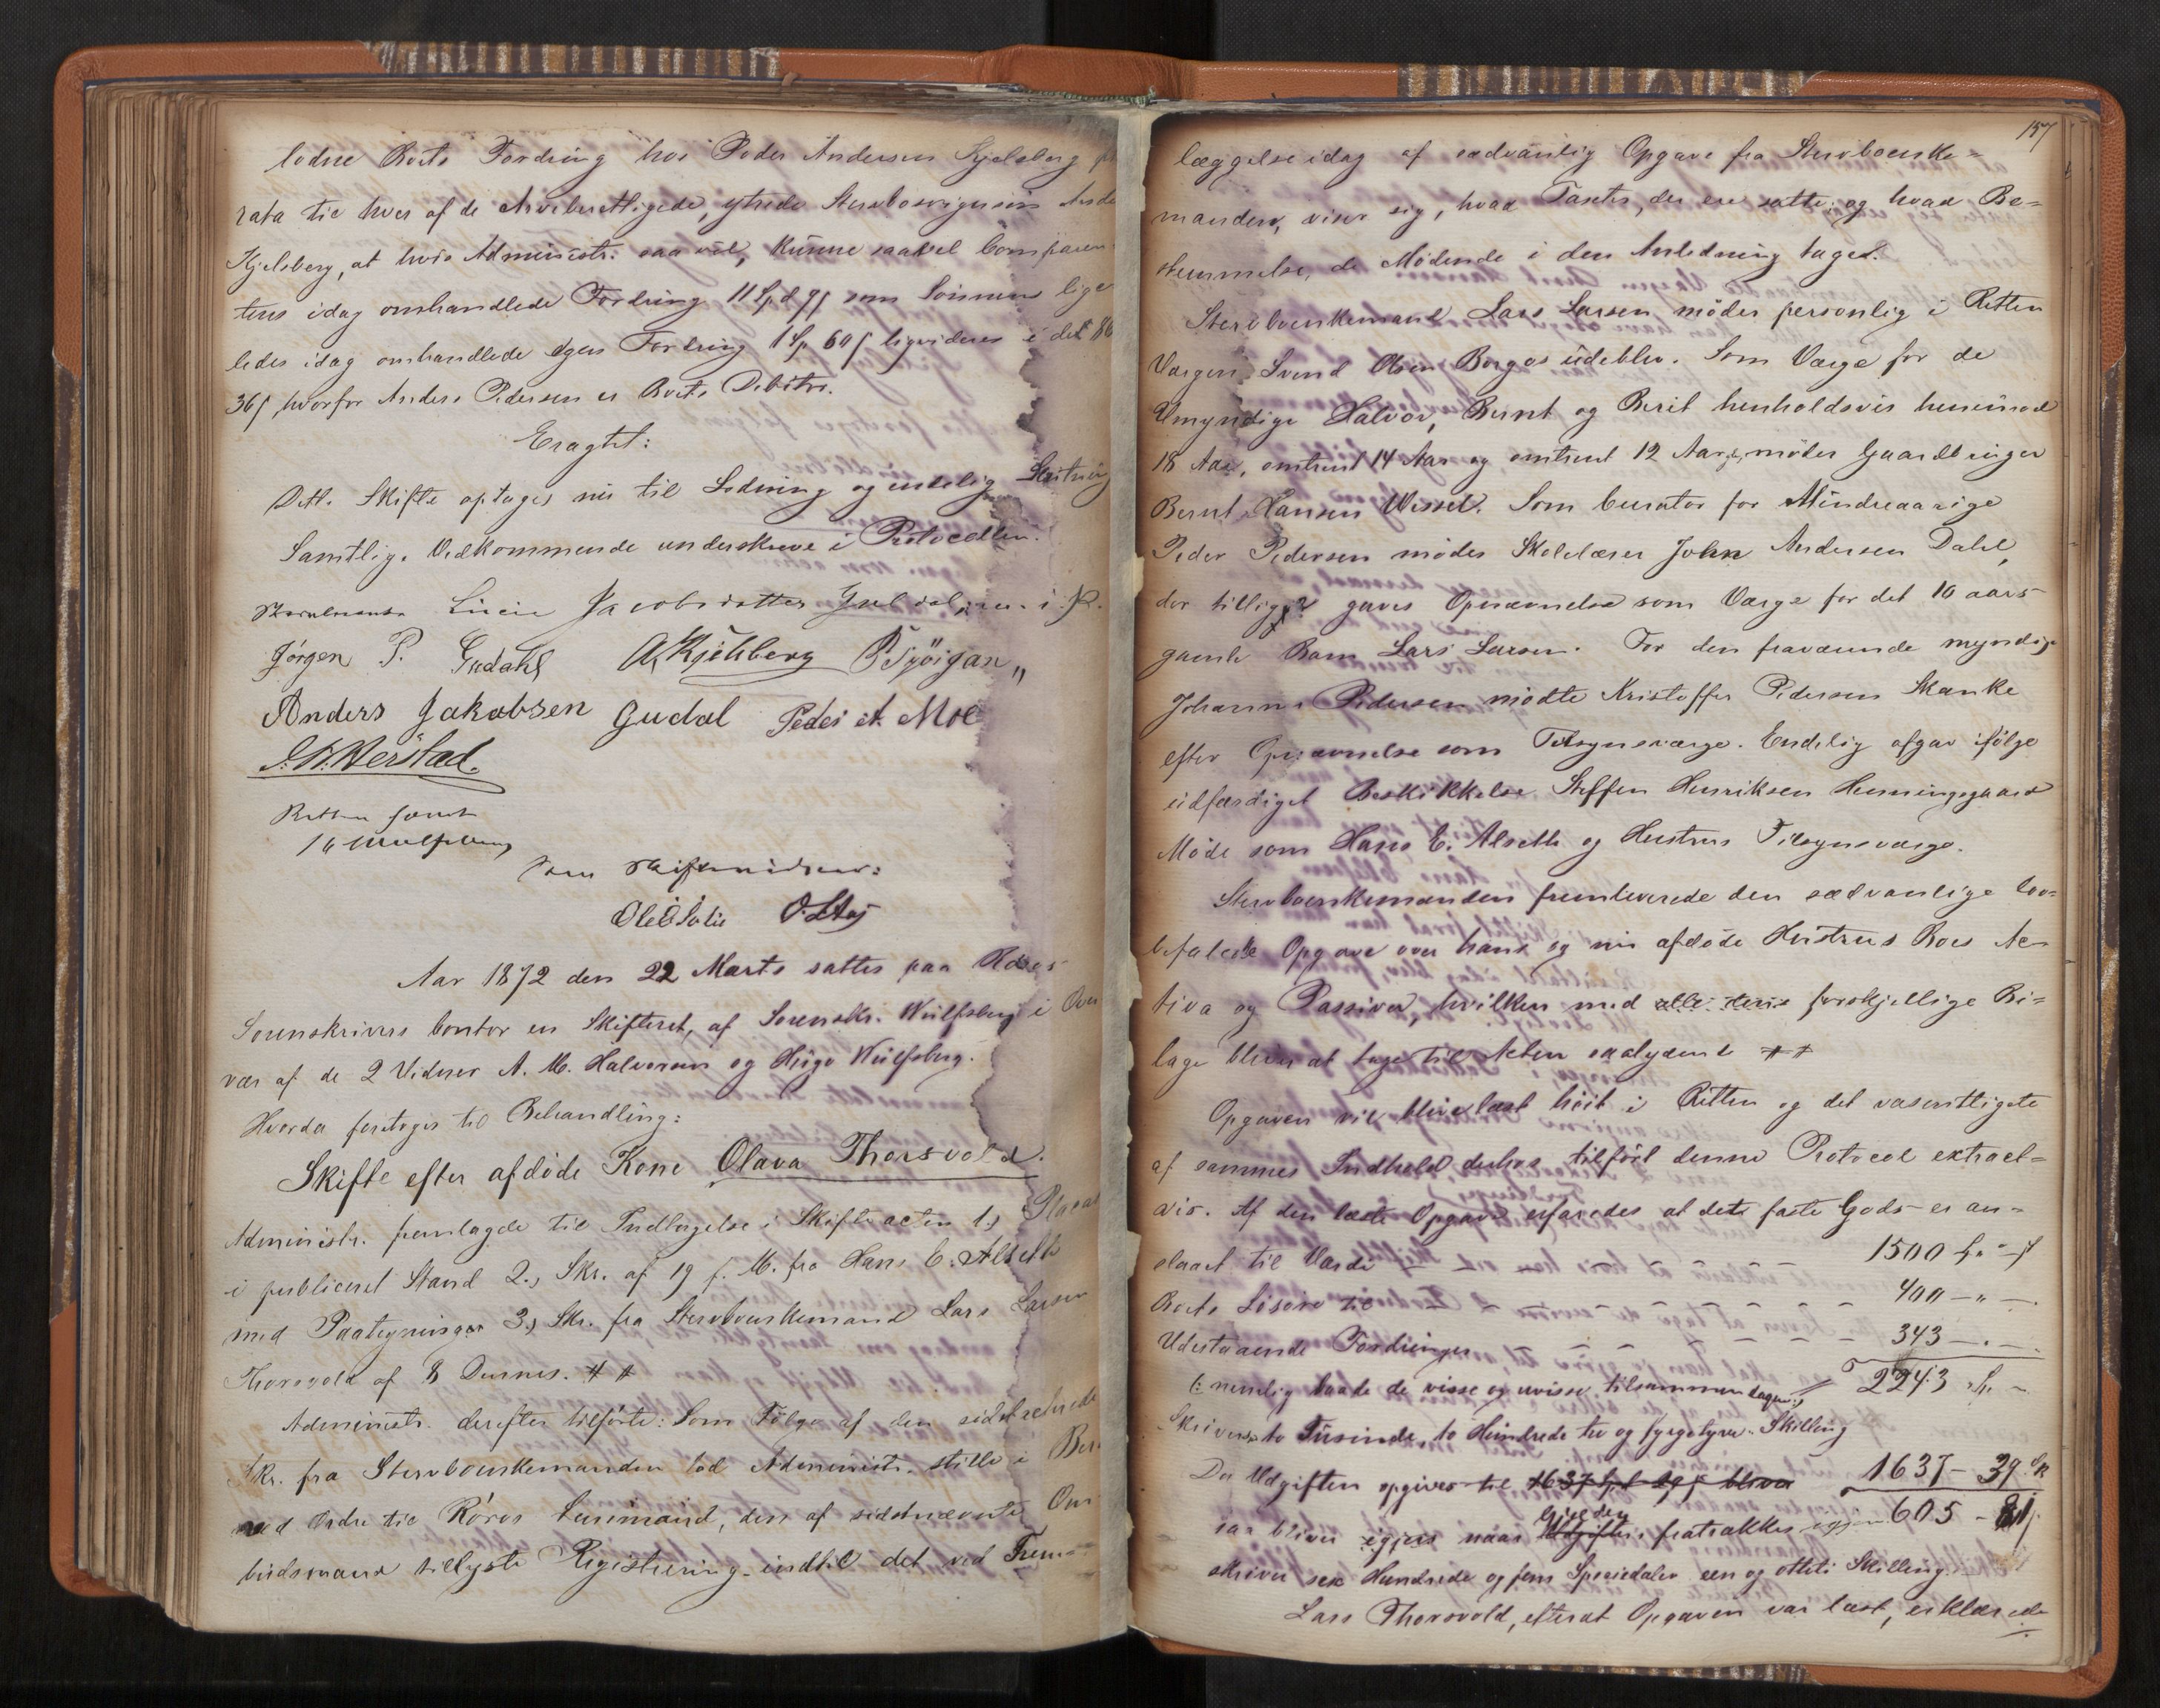 lodne Boets Fordring hos Peder Andersen Kjelsberg
rata til hver af de Arveberettigede, ytrede Stervbosvigersøn Ande
Kjelsberg, at hvis Administr. saa vil, kunne saavel Comparen
tens idag omhandlede Fordring 11 Spd 9 s som Sønnens lige
ledes idag omhandlede egen Fordring 1 Sp 60 s liqvideres i det 86
36 s, hvorfor Anders Pedersen er Boets Debitor.
Eragtet:
Dette Skifte optages nu til Lodning og endelig Slutning
Samtlige Vedkommende underskrive i Protocollen.
Lucie Jacobsdatter m. i. P.
Jørgen P. Gudahl A. Kjelsberg
Anders Jakobsen Gudal Peder A. Moe
Retten hævet
Wulfsberg
Som Skiftevidner:
Ole O.
Aar 1872 den 22 Marts sattes paa Røros
Sorenskrivers Contor en Skifteret, af Sorenskr. Wulfsberg i Over
vær af de 2 Vidner A. M. Halvorsen og Hugo Wulfsberg.
Hvorda foretoges til Behandling:
Skifte efter afdøde Kone Olava Thorsvold.
Administr. fremlagde til Indtagelse i Skifteacten 1.) Placat
i publiceret Stand 2.) Skr. af 19 f. M. fra Hans E. Alseth
med Paategninger 3.) Skr. fra Stervboenkemand Lars Larsen
Thorsvold af 8 Dennes. # #
Administr. derefter tilførte: Som Følge af den sidstnævnte
Skr. fra Stervboenkemanden lod Administr. stille i Ber
med Ordre til Røros Lensmand, den af sidstnævnte Om
budsmand tillyste Registrering indtil det ved Frem-
157
læggelse idag af sædvanlig Opgave fra Stervboenke-
manden, viser sig, hvad Taxter, der ere satte, og hvad Be-
stemmelse, de Mødende i den Anledning tage.
Stervboenkemand Lars Larsen møder personlig i Retten
Værgen Svend Olsen Borgos udeblev. Som Værge for de
Umyndige Halvor, Bernt og Berit henholdsvis henimod
18 Aar, omtrent 14 Aar og omtrent 12 Aar, møder Gaardbruger
Bernt Hansen Wessel. Som Curator for Mindreaarige
Peder Pedersen møder Skolelærer John Andersen Dahl,
der tillige gaves Opnævnelse som Værge for det 10 aars
gamle Barn Lars Larsen. For den fraværende myndige
Johannes Pedersen mødte Kristoffer Pedersen Skanke
efter Opnævnelse som Tilsynsværge. Endelig afgav ifølge
udfærdiget Beskikkelse Steffen Henriksen Henningsgaard
Møde som Hans E. Alseth og Hustrus Tilsynsværge.
Stervboenkemanden fremleverede den sædvanlige lov-
befalede Opgave over hans og nu afdøde Hustrus Boes Ac-
tiva og Passiva, hvilken med alle dens forskjellige Bi-
lage bliver at tage til Acten saalydende # #
Opgaven vil blive læst høit i Retten og det væsentligste
af sammes Indhold derhos tilført denne Protocol extract-
vis. Af den læste Opgave erfaredes at dets faste Gods er an-
slaaet til Værdi 1500 Sp. " s
Boets Løsøre til 400 — " —
Udestaaende Fordringer 343 — . —
(: nemlig baade de visse og uvisse tilsammen tagen :) 2243 Sp. -
Skriver to Tusinde, to Hundrede tre og fyrgetyve Skilling
Da Udgiften opgives til 1637 Spd 39 s bliver 1637 — 39 Sk
saa bliver igjen naar Gjælden Udgiften fratrækkes igjen 605 — 81
skriver sex Hundrede og fem Speciedaler een og otteti Skilling
Lars Thorsvold, efterat Opgaven var læst, erklærede